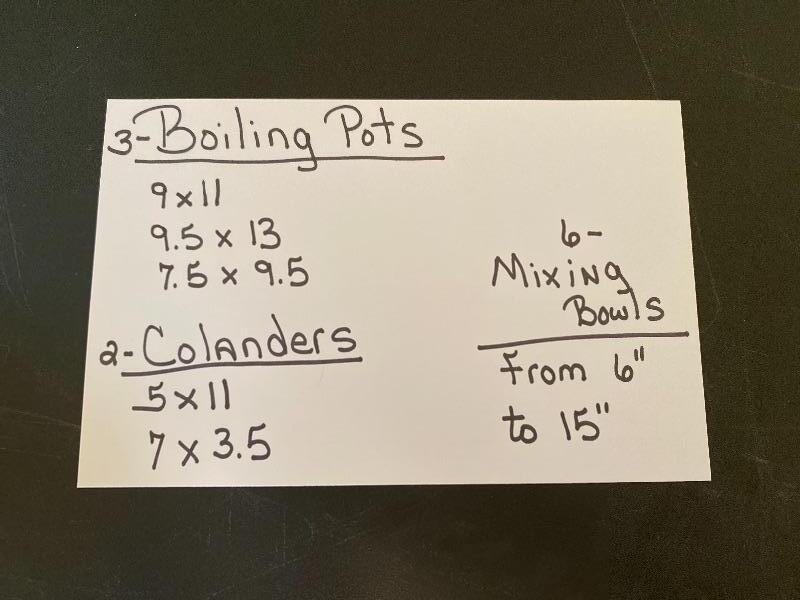 3-Boiling Pots
9 x 11
9.5 x 13
7.5 x 9.5
2-Colanders
5 x 11
7 x 3.5
6-
Mixing
Bowls
From 6"
to 15"